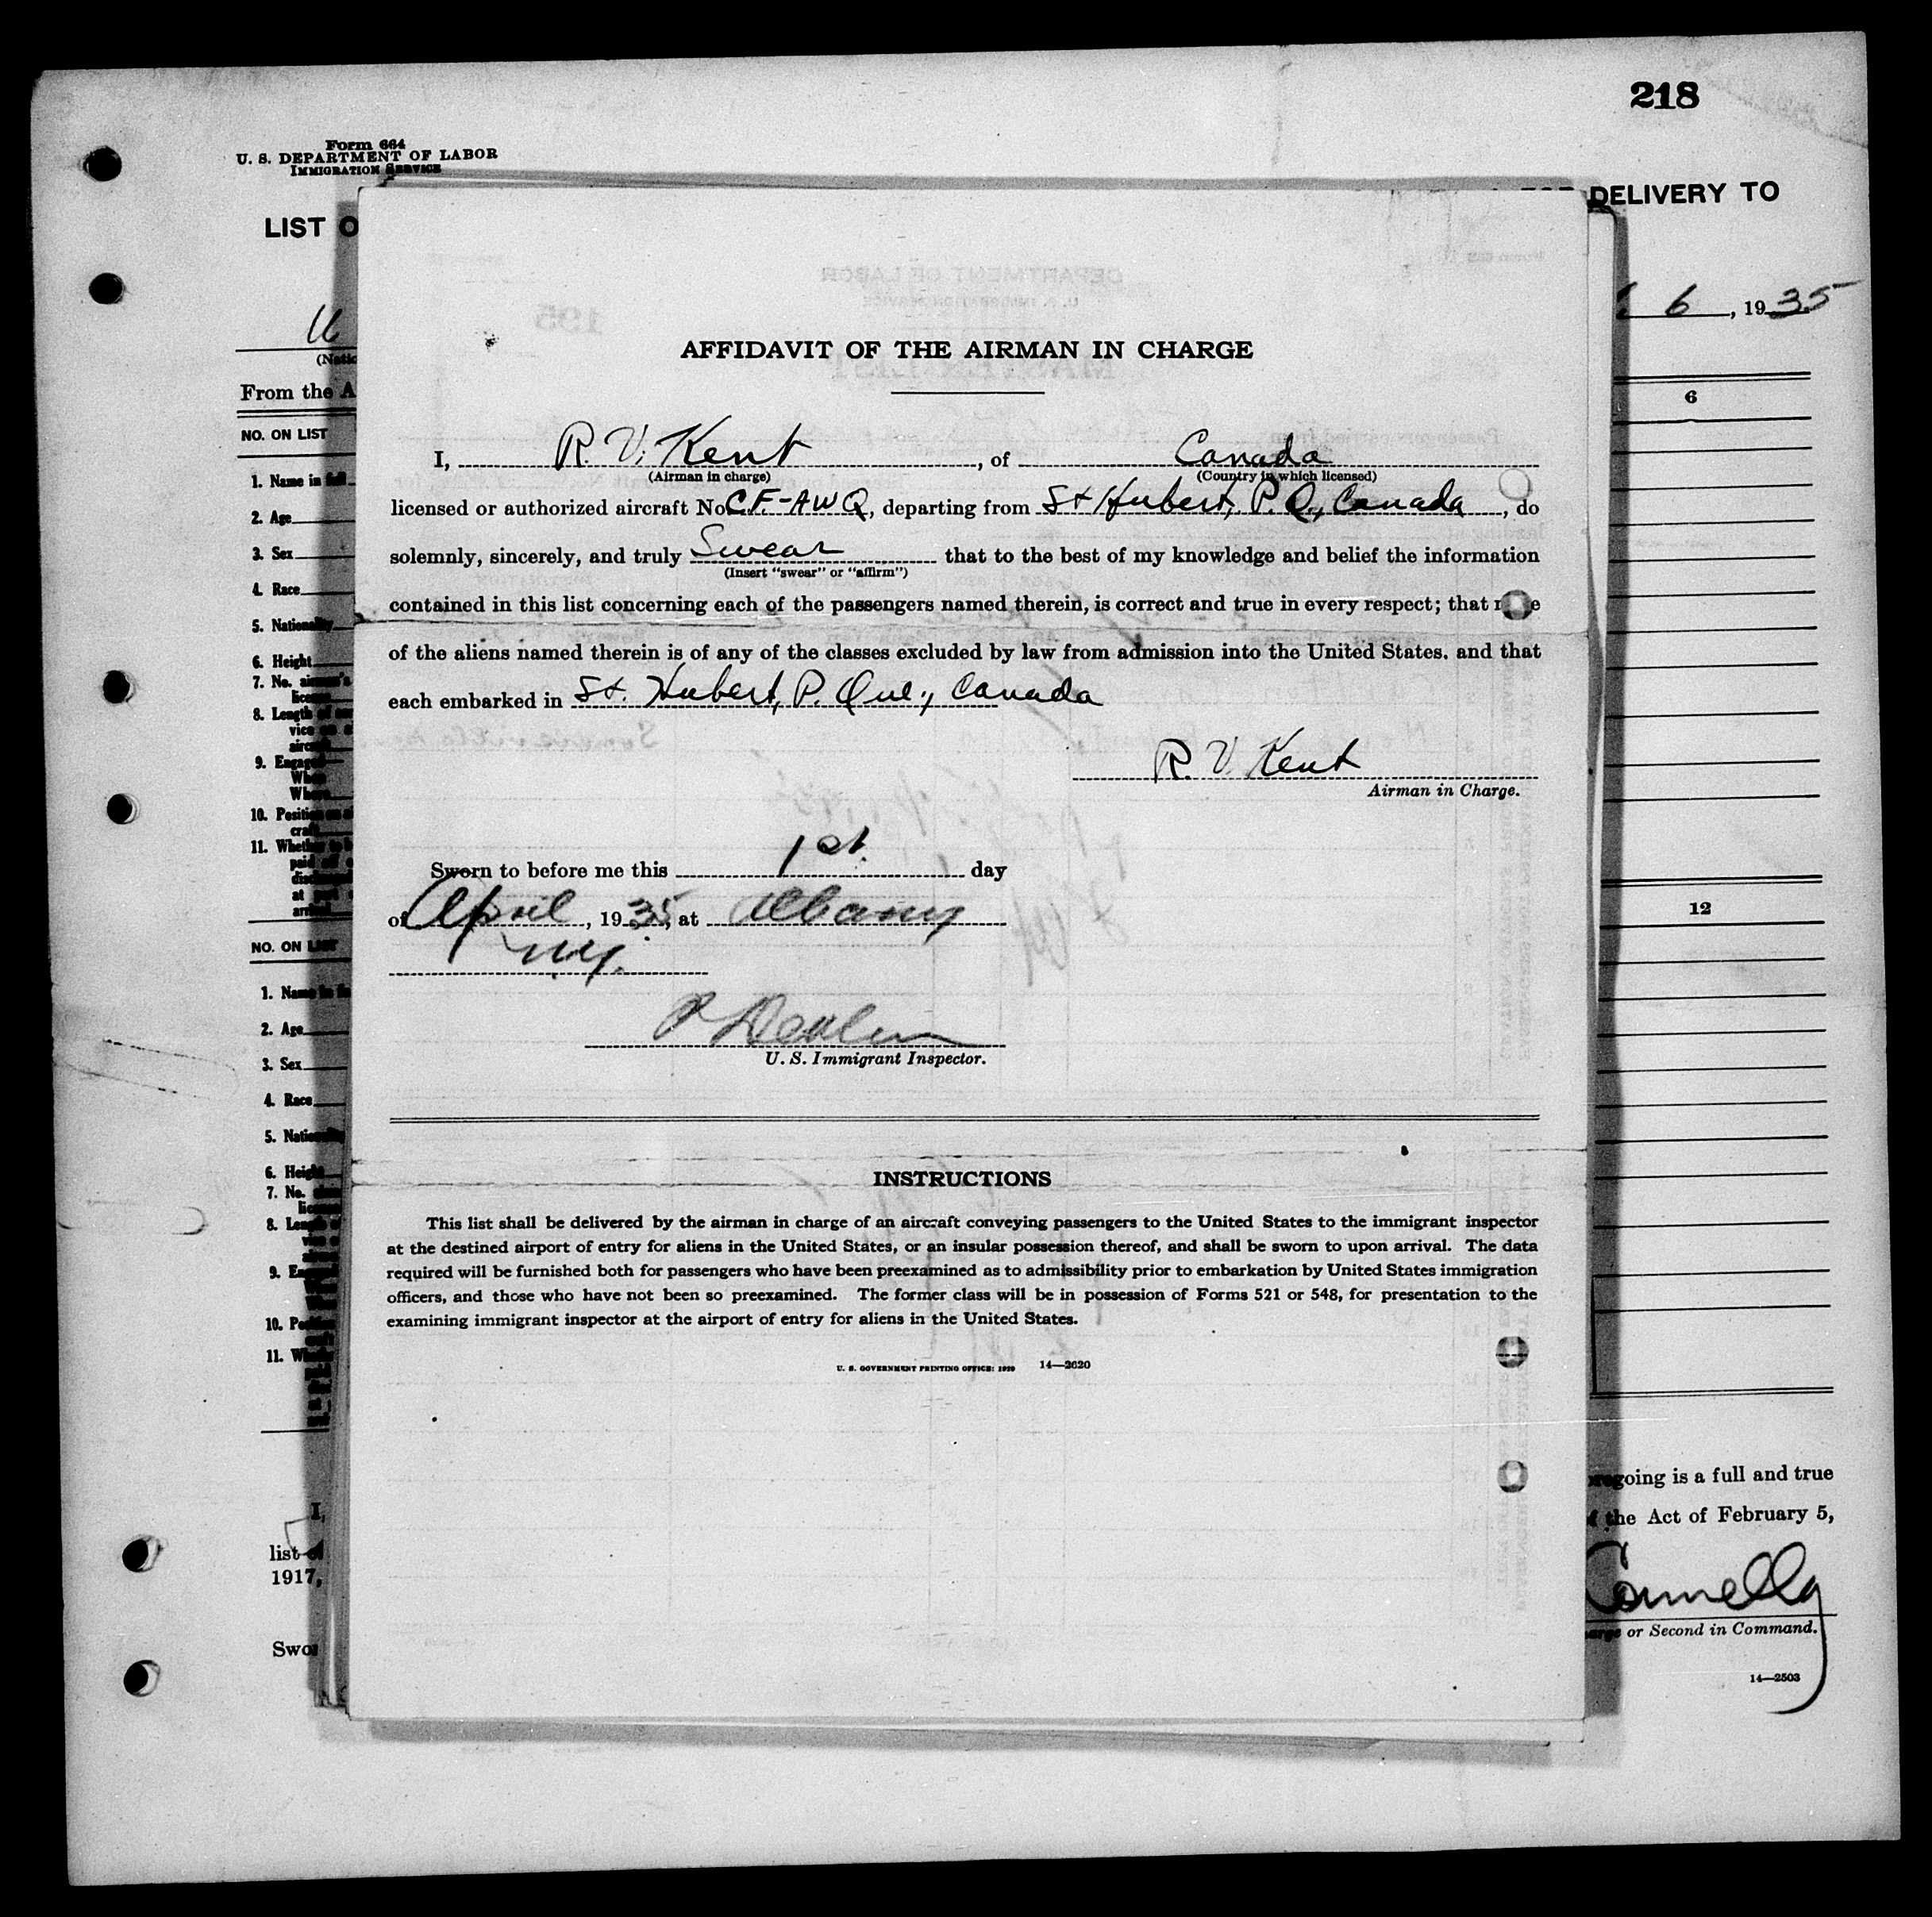 218
Form 664
U. S. DEPARTMENT OF LABOR
IMMIGRATION SERVICE
DELIVERY TO
LIST O
6, 1935
From the A
6
NO. ON LIST
1. Name in full
2. Age
3. Sex
4. Race
5. Nationality
6. Height
7. No. airman's
8. Length of
aircraft
9. Engaged
When
Where
10. Position
craft
11. Whether
12
NO. ON LIST
1. Name in
2. Age
3. Sex
4. Race
5. Nationality
6. Height
7. No.
8. Length
9.
10.
11.
I,
list of
1917,
Swor
AFFIDAVIT OF THE AIRMAN IN CHARGE
I, R. V. Kent, of Canada
(Airman in charge) (Country in which licensed)
licensed or authorized aircraft No. CF-AWQ, departing from St Hubert, P. Q., Canada, do
solemnly, sincerely, and truly Swear that to the best of my knowledge and belief the information
(Insert "swear" or "affirm")
contained in this list concerning each of the passengers named therein, is correct and true in every respect; that none
of the aliens named therein is of any of the classes excluded by law from admission into the United States, and that
each embarked in St. Hubert, P. Que., Canada
R. V. Kent
Airman in Charge.
Sworn to before me this 1st. day
of April, 1935, at Albany
N.Y.
U. S. Immigrant Inspector.
INSTRUCTIONS
This list shall be delivered by the airman in charge of an aircraft conveying passengers to the United States to the immigrant inspector
at the destined airport of entry for aliens in the United States, or an insular possession thereof, and shall be sworn to upon arrival. The data
required will be furnished both for passengers who have been preexamined as to admissibility prior to embarkation by United States immigration
officers, and those who have not been so preexamined. The former class will be in possession of Forms 521 or 548, for presentation to the
examining immigrant inspector at the airport of entry for aliens in the United States.
U. S. GOVERNMENT PRINTING OFFICE: 1929 14—2620
foregoing is a full and true
the Act of February 5,
Connelly
or Second in Command.
14—2503